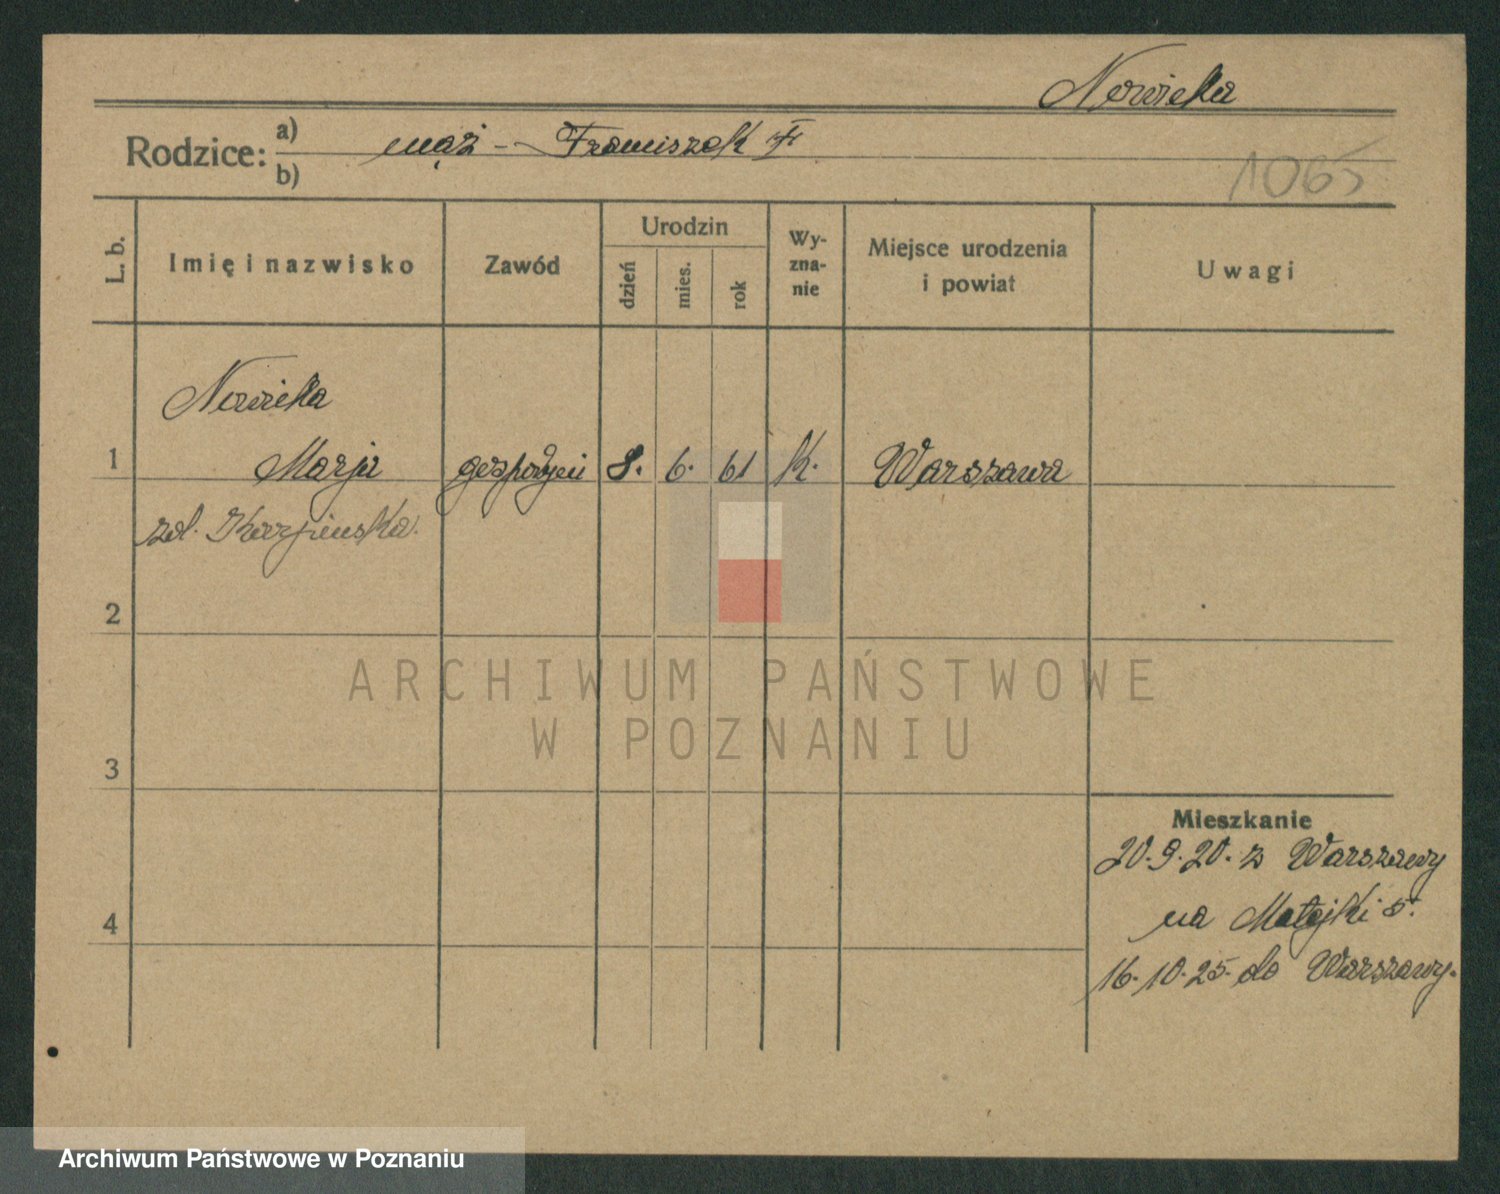 Nowicka
Rodzice: a) mąż - Franciszek
b)
1065
L. b.
Imię i nazwisko
Zawód
Urodzin
dzień
mies.
rok
Wy-
zna-
nie
Miejsce urodzenia
i powiat
Uwagi
Nowicka
1 Marja 8. 6. 61 K. Warszawa
2
3
4
Mieszkanie
20.9.20. z Warszawy
na Matejki 5.
16.10.25. do Warszawy.
ARCHIWUM PAŃSTWOWE
W POZNANIU
Archiwum Państwowe w Poznaniu